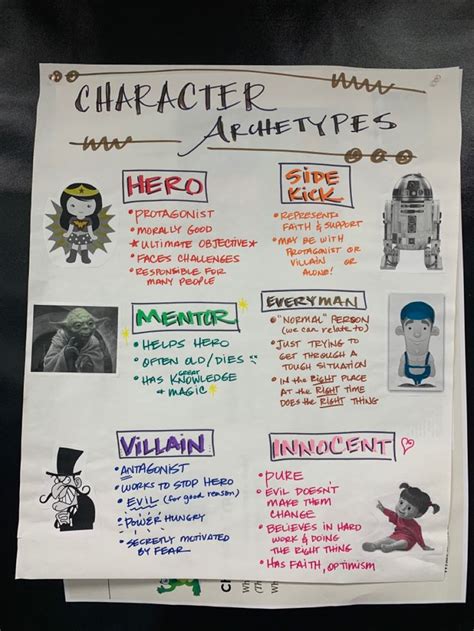 CHARACTER
ARCHETYPES
HERO
• PROTAGONIST
• MORALLY GOOD
★ ULTIMATE OBJECTIVE ★
• FACES CHALLENGES
• RESPONSIBLE FOR
MANY PEOPLE
SIDE
KICK
• REPRESENTS
FAITH & SUPPORT
• MAY BE WITH
PROTAGONIST OR
VILLAIN OR
ALONE!
MENTOR
• HELPS HERO
• OFTEN OLD/DIES
• HAS GREAT KNOWLEDGE
+ MAGIC
EVERYMAN
• "NORMAL" PERSON
(we can relate to)
• JUST TRYING TO
GET THROUGH A
TOUGH SITUATION
• IN the RIGHT PLACE
AT the RIGHT TIME
DOES the RIGHT THING
VILLAIN
• ANTAGONIST
• WORKS TO STOP HERO
• EVIL (for good reason)
• POWER HUNGRY
• SECRETLY MOTIVATED
BY FEAR
INNOCENT
• PURE
• EVIL DOESN'T
MAKE THEM
CHANGE
• BELIEVES IN HARD
WORK & DOING
THE RIGHT THING
• HAS FAITH, OPTIMISM